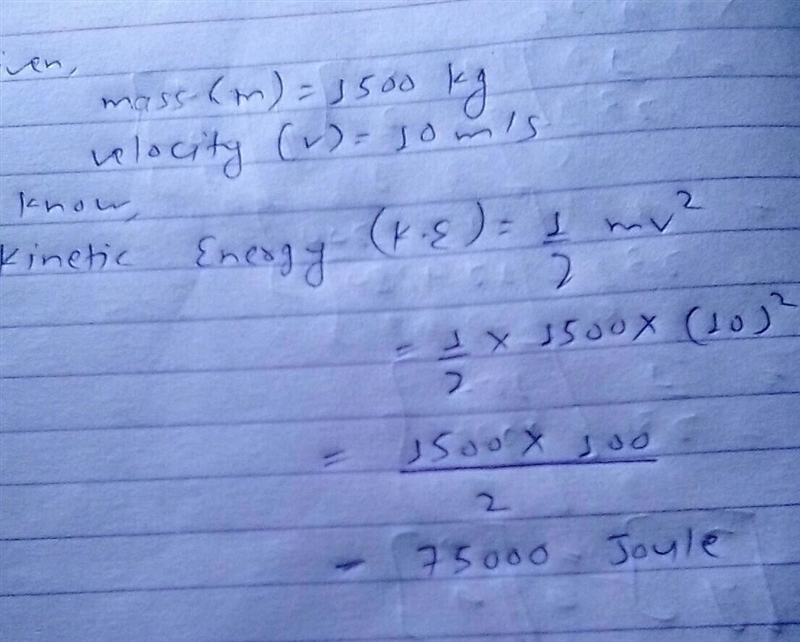 iven,
mass (m) = 1500 kg
velocity (v) = 10 m/s
know,
Kinetic Energy (K.E) = 1/2 mv²
= 1/2 × 1500 × (10)²
= 1500 × 100 / 2
= 75000 Joule